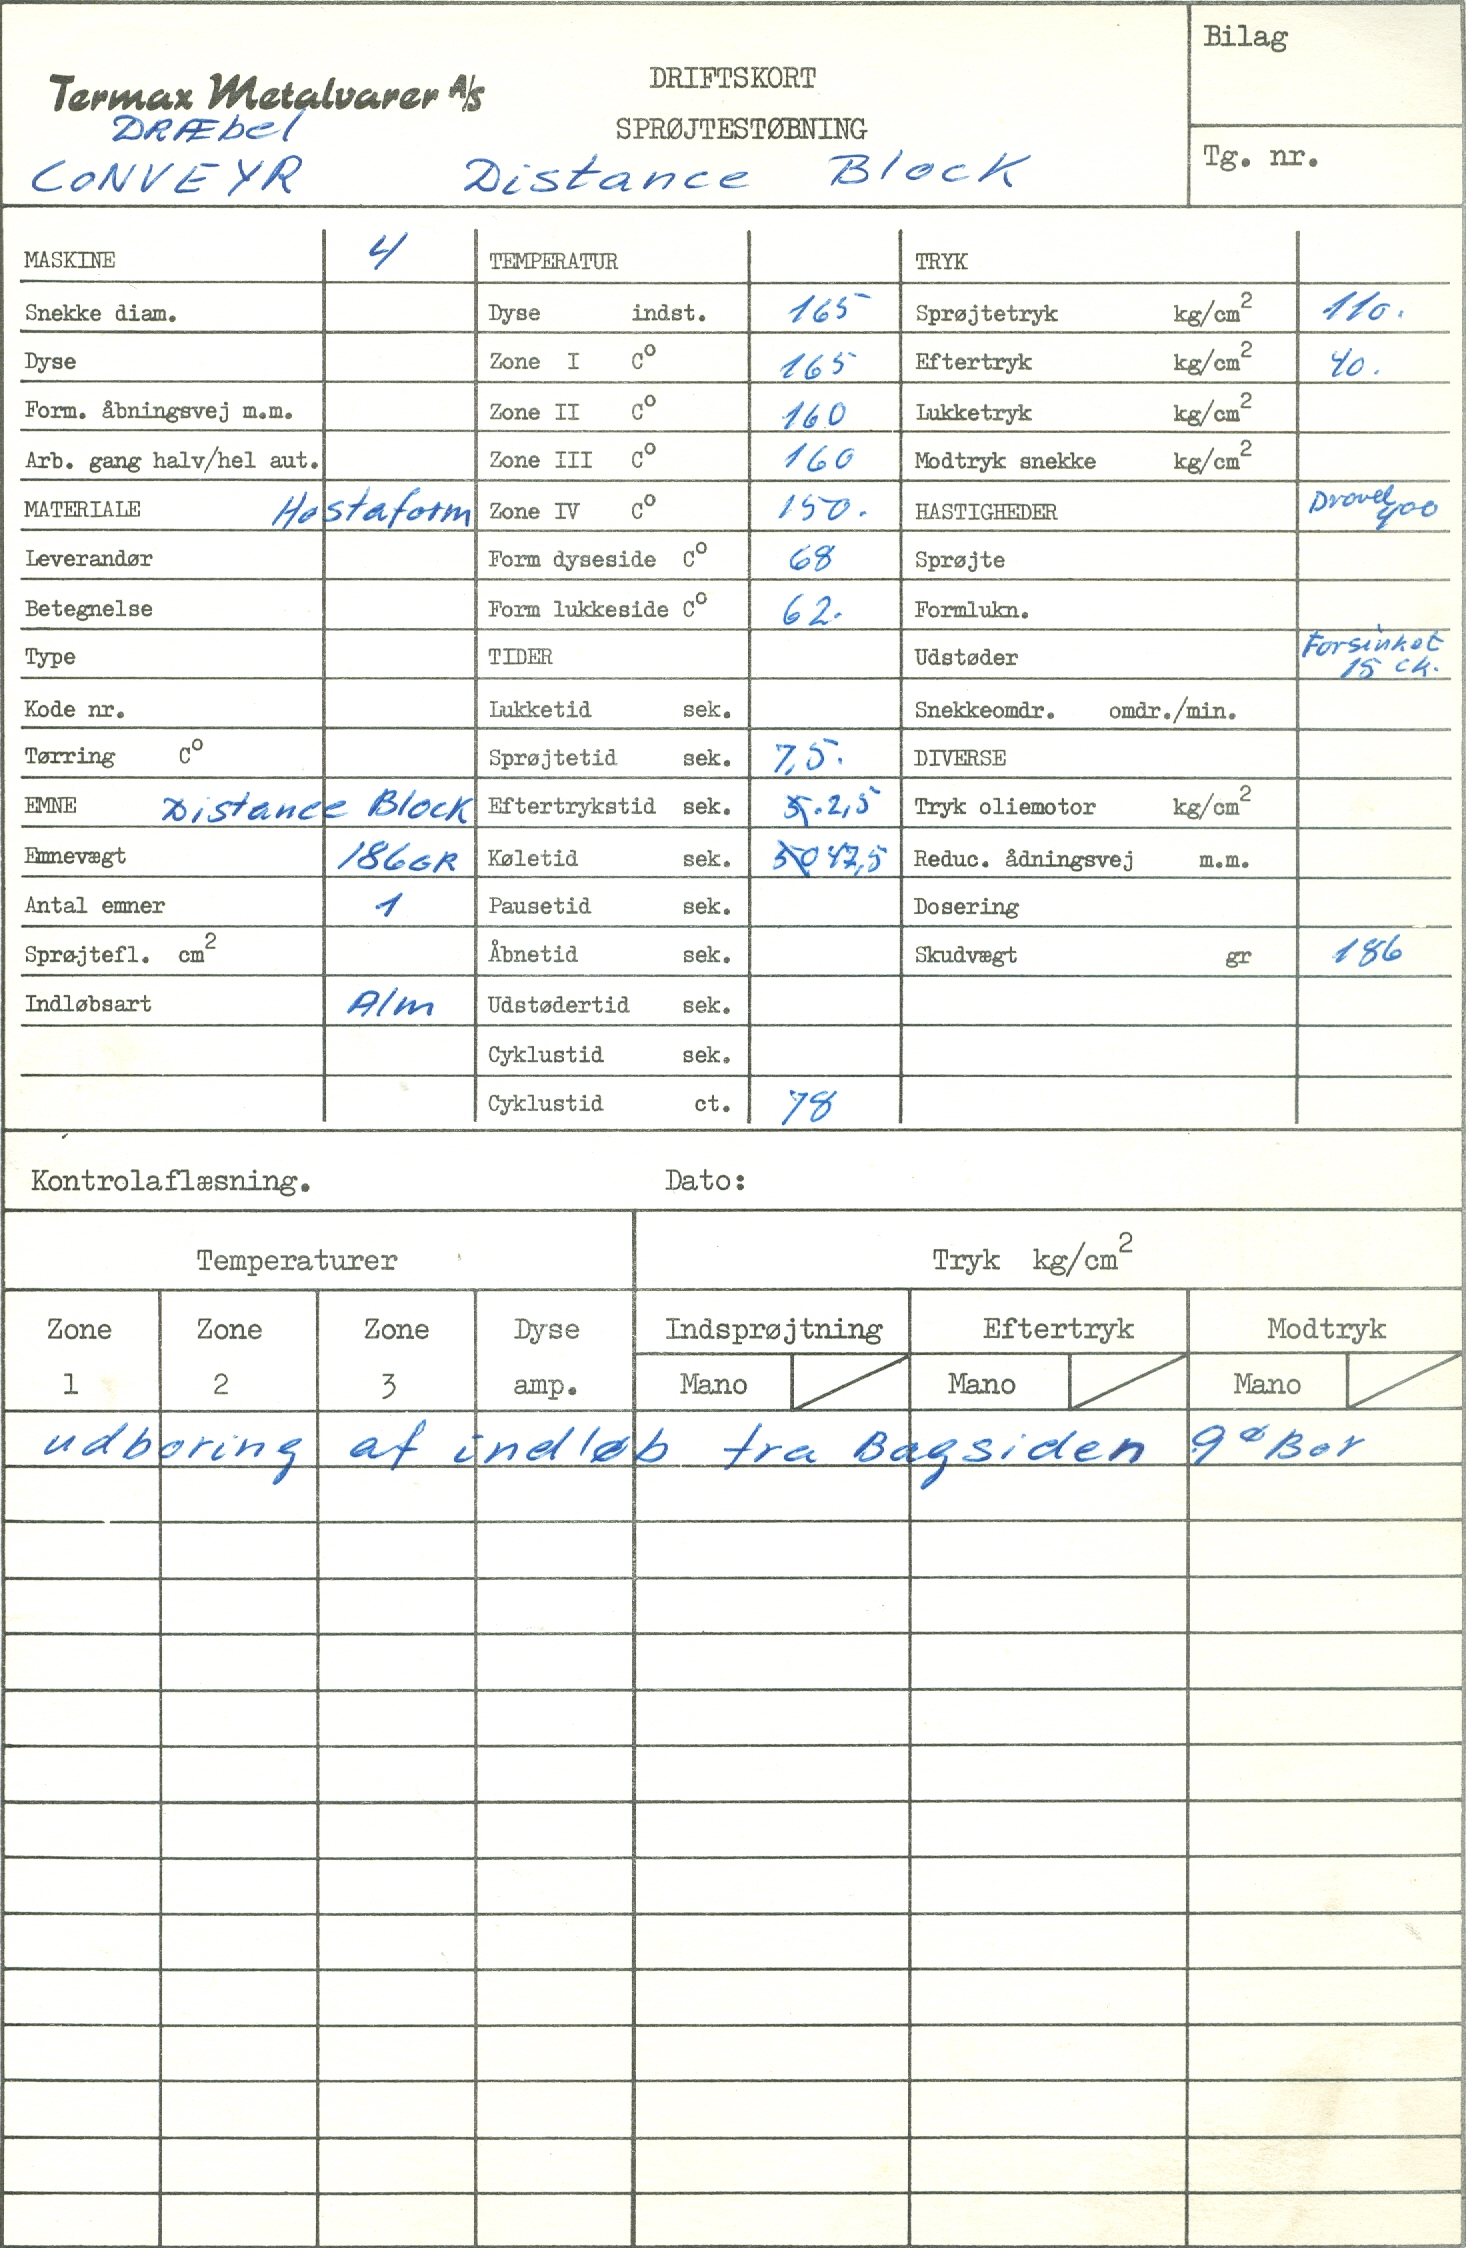 Bilag
Termax Metalvarer A/S
DRIFTSKORT
SPRØJTESTØBNING
DRÆbel
CONVEYR Distance Block
Tg. nr.
MASKINE 4 TEMPERATUR TRYK
Snekke diam. Dyse indst. 165 Sprøjtetryk kg/cm² 110.
Dyse Zone I C° 165 Eftertryk kg/cm² 40.
Form. åbningsvej m.m. Zone II C° 160 Lukketryk kg/cm²
Arb. gang halv/hel aut. Zone III C° 160 Modtryk snekke kg/cm²
MATERIALE Hostaform Zone IV C° 150. HASTIGHEDER 400
Leverandør Form dyseside C° 68 Sprøjte
Betegnelse Form lukkeside C° 62. Formlukn.
Type TIDER Udstøder Forsinket 15 ck.
Kode nr. Lukketid sek. Snekkeomdr. omdr./min.
Tørring C° Sprøjtetid sek. 7,5. DIVERSE
EMNE Distance Block Eftertrykstid sek. 5. 2,5 Tryk oliemotor kg/cm²
Emnevægt 186 GR Køletid sek. 50 47,5 Reduc. ådningsvej m.m.
Antal emner 1 Pausetid sek. Dosering
Sprøjtefl. cm² Åbnetid sek. Skudvægt gr 186
Indløbsart Alm Udstødertid sek.
Cyklustid sek.
Cyklustid ct. 78
Kontrolaflæsning. Dato:
Temperaturer Tryk kg/cm²
Zone Zone Zone Dyse Indsprøjtning Eftertryk Modtryk
1 2 3 amp. Mano Mano Mano
udboring af indløb fra Bagsiden 9ø Bor